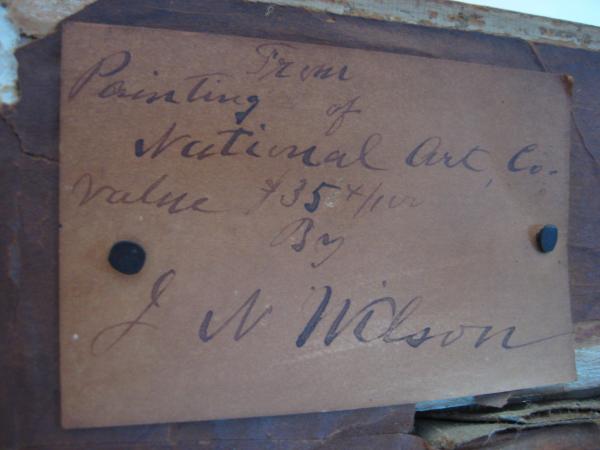 From
Painting of
National Art Co.
Value $35
By
J N Wilson